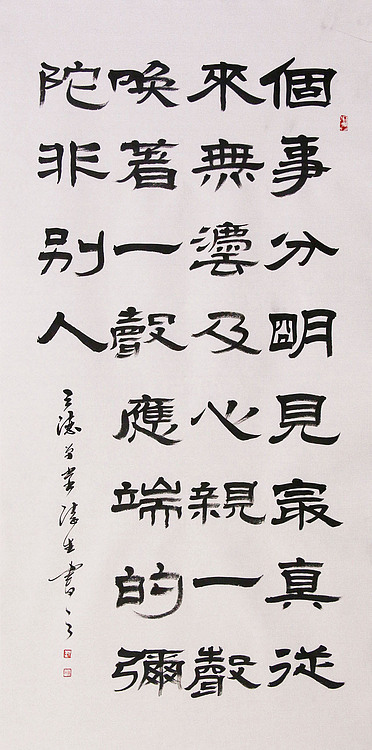 個事分明見最真從
來無灋及心親一聲
喚著一聲應端的彌
陀非別人
書